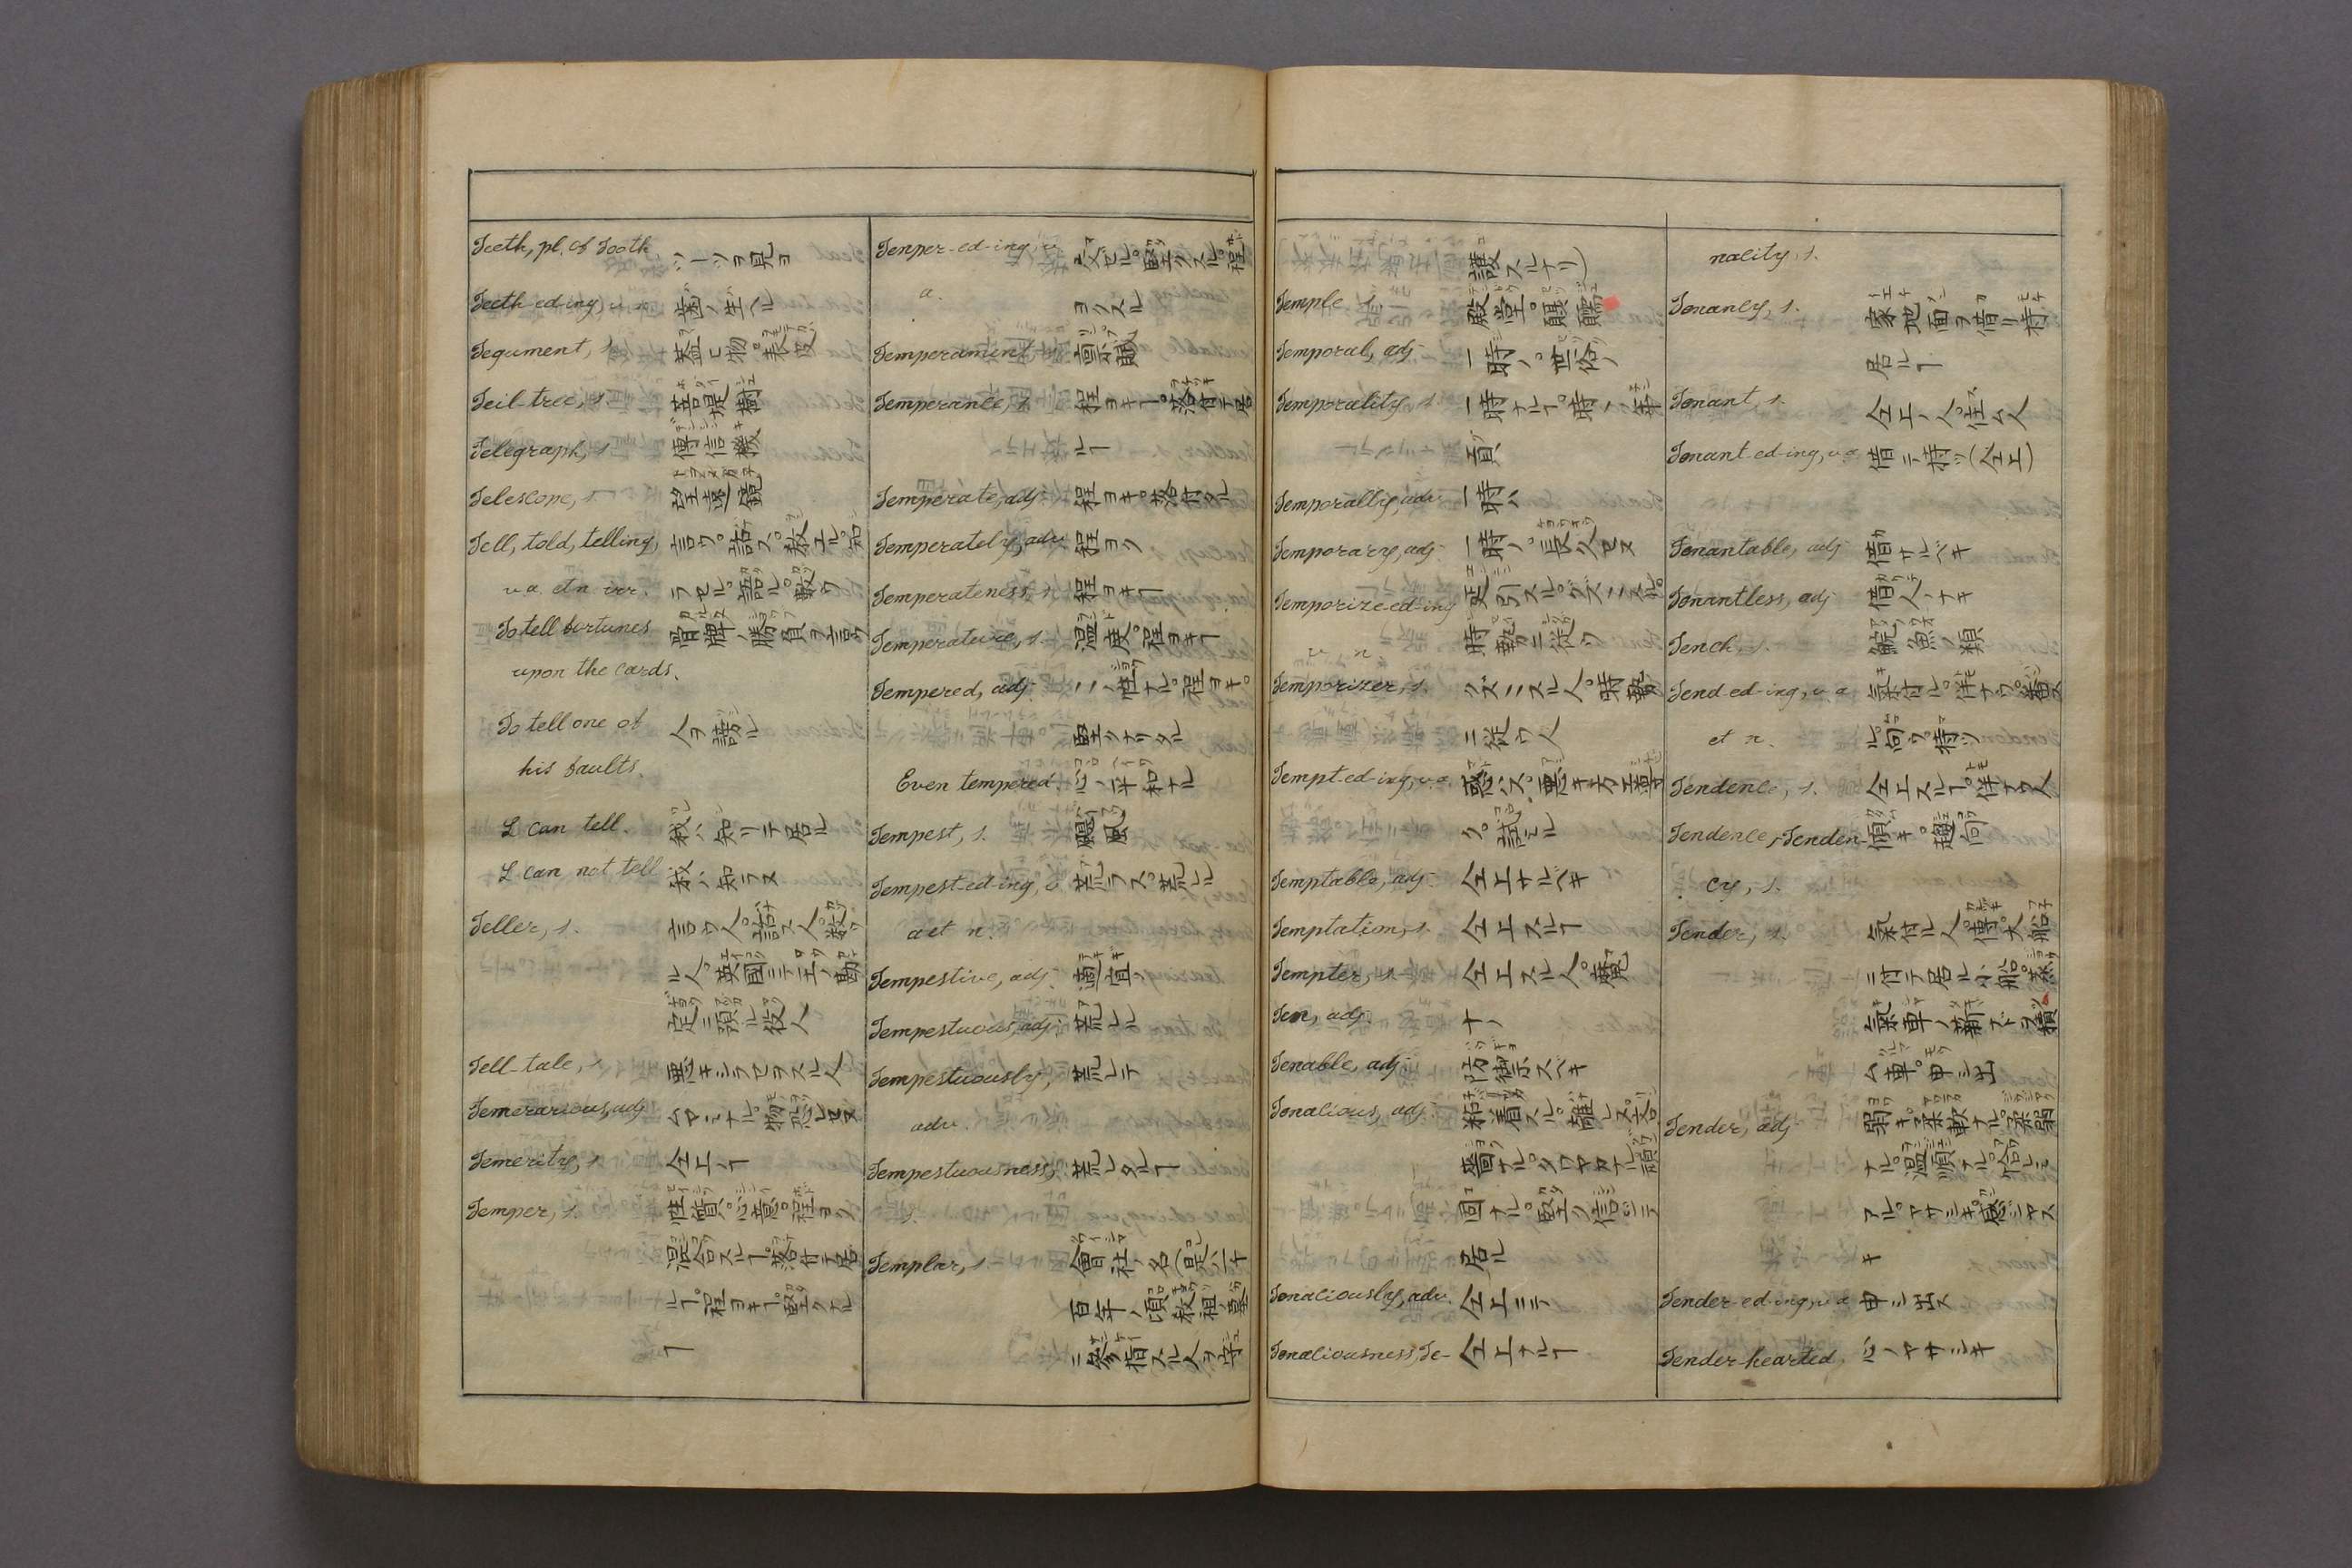 Teeth, pl. of Tooth ツーツヲ見ヨ
Teeth-ed-ing, v. n. 歯ノ生ヘル
Tegument, s. 蓋ヒ物。表皮
Teil-tree, s. 菩提樹
Telegraph, s. 傳信機
Telescope, s. 望遠鏡
Tell, told, telling, 言ウ。話ス。教エル。知
v. a. et n. irr. ラセル。語ル。數ウ
To tell fortunes 骨牌ノ勝負ヲ言
upon the cards.
To tell one of 人ヲ謗ル
his faults.
I can tell. 我ハ知リテ居ル
I can not tell 我ハ知ラヌ
Teller, s. 言ウ人。話ス人。數ヅ
ル人。英國ニテ王ノ勘
定ニ預ル役人
Tell-tale, s. 悪キシラセヲスル人
Temerarious, adj. ムヤミナル。物恐レセヌ
Temerity, s. 仝上ノヿ
Temper, s. 性質。心意。程ヨク
混合スルヿ。落付テ居
ルヿ。程ヨキヿ。堅クスル
ヿ
Temper-ed-ing, v. 交ゼル。堅クスル。程
a. ヨクスル
Temperament, s. 禀賦
Temperance, s. 程ヨキヿ。落付テ居
ルヿ
Temperate, adj. 程ヨキ。落付タル
Temperately, adv. 程ヨク
Temperateness, s. 程ヨキヿ
Temperature, s. 温度。程ヨキヿ
Tempered, adj. ニノ性ナル。程ヨキ。
堅クナリタル
Even tempered. 心ノ平和ナル
Tempest, s. 颶風
Tempest-ed-ing, v. 荒ラス。荒レル
a et n.
Tempestive, adj. 適宜ノ
Tempestuous, adj. 荒レル
Tempestuously, 荒レテ
adv.
Tempestuousness, 荒レタルヿ
s.
Templar, s. 會社ノ名(是ハ千
百年ノ頃教祖ノ墓
ニ參指スル人ヲ守
護スルナリ)
Temple, s. 殿堂。顳顬
Temporal, adj. 一時ノ。世俗ノ
Temporality, s. 一時ナルヿ。時ノ年
貢
Temporally, adv. 一時ハ
Temporary, adj. 一時ノ。長久セヌ
Temporize-ed-ing 延引スル。グズニスル。
v. n. 時勢ニ從ウ
Temporizer, s. グズニスル人。時勢
ニ從ウ人
Tempt-ed-ing, v. a. 惑ハス。悪キ方エ導
ク。試ミル
Temptable, adj. 仝上サルベキ
Temptation, s. 仝上スルヿ
Tempter, s. 仝上スル人。魔
Ten, adj. 十ノ
Tenable, adj. 防禦スベキ
Tenacious, adj. 粘着スル。離レヌ。吝
嗇ナル。タワヤカナル。頑
固ナル。堅ク信ジテ
居ル
Tenaciously, adv. 仝上ニテ
Tenaciousness, Te- 仝上ナルヿ
nacity, s.
Tenancy, s. 家地面ヲ借リ持テ
居ルヿ
Tenant, s. 仝上ノ人。住ム人
Tenant-ed-ing, v. a. 借テ持ツ(仝上)
Tenantable, adj. 借サルベキ
Tenantless, adj. 借人ノナキ
Tench, s. 魚ノ類
Tend-ed-ing, v. a. 氣付ル。伴ナウ。番ス
et n. ル。向ウ。待ツ
Tendence, s. 仝上スルヿ。伴ナウ人
Tendence, Tenden- 傾キ。趣向
cy, s.
Tender, s. 氣付ル人。傳。大船
ニ付テ居ル小船。蒸
氣車ノ薪ナドヲ積
ム車。申シ出
Tender, adj. 弱キ。柔軟ナル。柔弱
ナル。温順ナル。
アル。ヤサシキ。感ジヤス
キ
Tender-ed-ing, v. a. 申シ出ス
Tender-hearted, 心ノヤサシキ